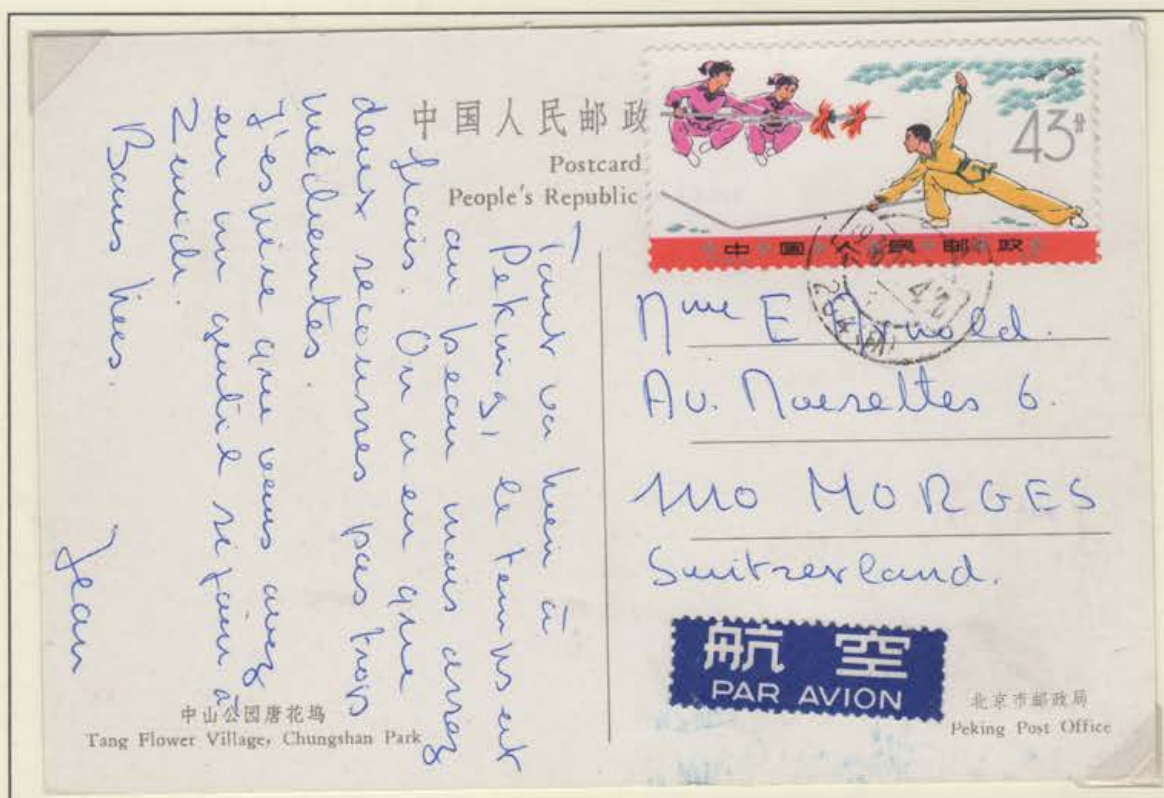 中国人民邮政
Postcard
People's Republic
43分
中国人民邮政
Tout va bien à
Peking, le temps est
au beau mais assez
frais. On a eu que
deux secousses pas trop
méchantes.
J'espère que vous avez
eu un gentil séjour à
Zurich.
Bons bises.
Jean
Mme E Arnold.
Av. Moisettes 6.
1110 MORGES
Switzerland.
航空
PAR AVION
中山公园唐花坞
Tang Flower Village, Chungshan Park
北京市邮政局
Peking Post Office